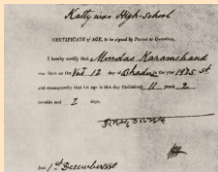 Kattywar High-School
CERTIFICATE of AGE, to be signed by Parent or Guardian.
I hereby certify that Mondas Karamchand
was born on the Vad. 12 day of Bhadarva the year 1925 st
and consequently that his age is this day (inclusive) 11 years 2
months and 2 days.
Date 1st December 1880